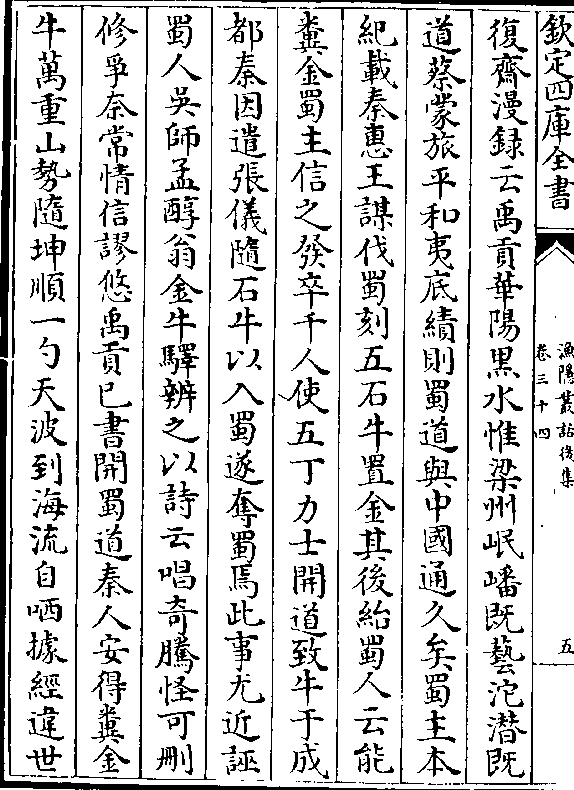 欽定四庫全書
漁隱叢話後集
卷三十四
五
復齋漫録云禹貢華陽黒水惟梁州岷嶓既藝沱潛既
道蔡蒙旅平和夷底績則蜀道與中國通久矣蜀主本
紀載秦惠王謀伐蜀刻五石牛置金其後紿蜀人云能
糞金蜀主信之發卒千人使五丁力士開道致牛于成
都秦因遣張儀隨石牛以入蜀遂奪蜀焉此事尤近誣
蜀人吳師孟醇翁金牛驛辨之以詩云唱奇騰怪可刪
修爭奈常情信謬悠禹貢已書開蜀道秦人安得糞金
牛萬重山勢隨坤順一勺天波到海流自哂據經違世